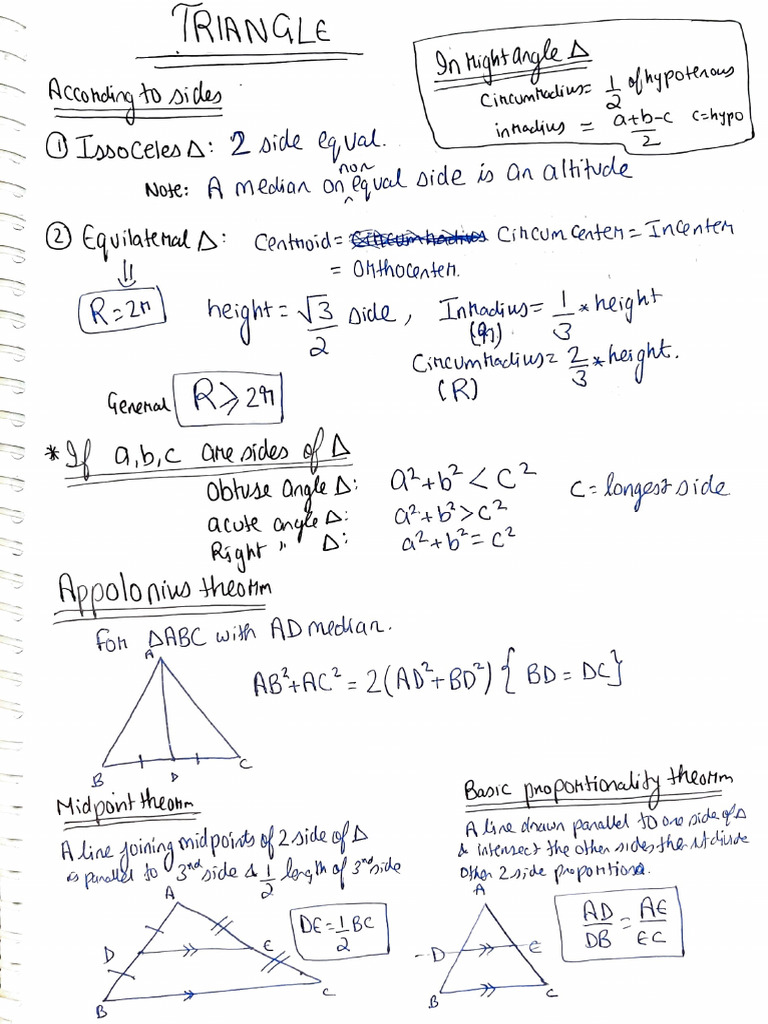 TRIANGLE
In right angle Δ
Circumradius = 1/2 of hypotenous
inradius = a+b-c/2 c=hypo
According to sides
① Issoceles Δ: 2 side equal.
Note: A median on non equal side is an altitude
② Equilateral Δ: Centroid = Circumradius Circumcenter = Incenter
= Orthocenter.
⇓
R = 2r
height = √3/2 side, Inradius = 1/3 * height
(r)
Circumradius = 2/3 * height.
(R)
General R ⩾ 2r
* If a,b,c are sides of Δ
Obtuse angle Δ: a²+b² < c²
c = longest side
acute angle Δ: a²+b² > c²
Right " Δ: a²+b² = c²
Appolonius theorm
For ΔABC with AD median.
A
AB²+AC² = 2(AD²+BD²) { BD = DC}
B D C
Midpoint theorm
A line joining midpoints of 2 side of Δ
is parallel to 3nd side & 1/2 length of 3nd side
A
D E
B C
DE = 1/2 BC
Basic proportionality theorm
A line drawn parallel to one side of Δ
& intersect the other sides then it divide
Other 2 side proportion.
A
D E
B C
AD/DB = AE/EC